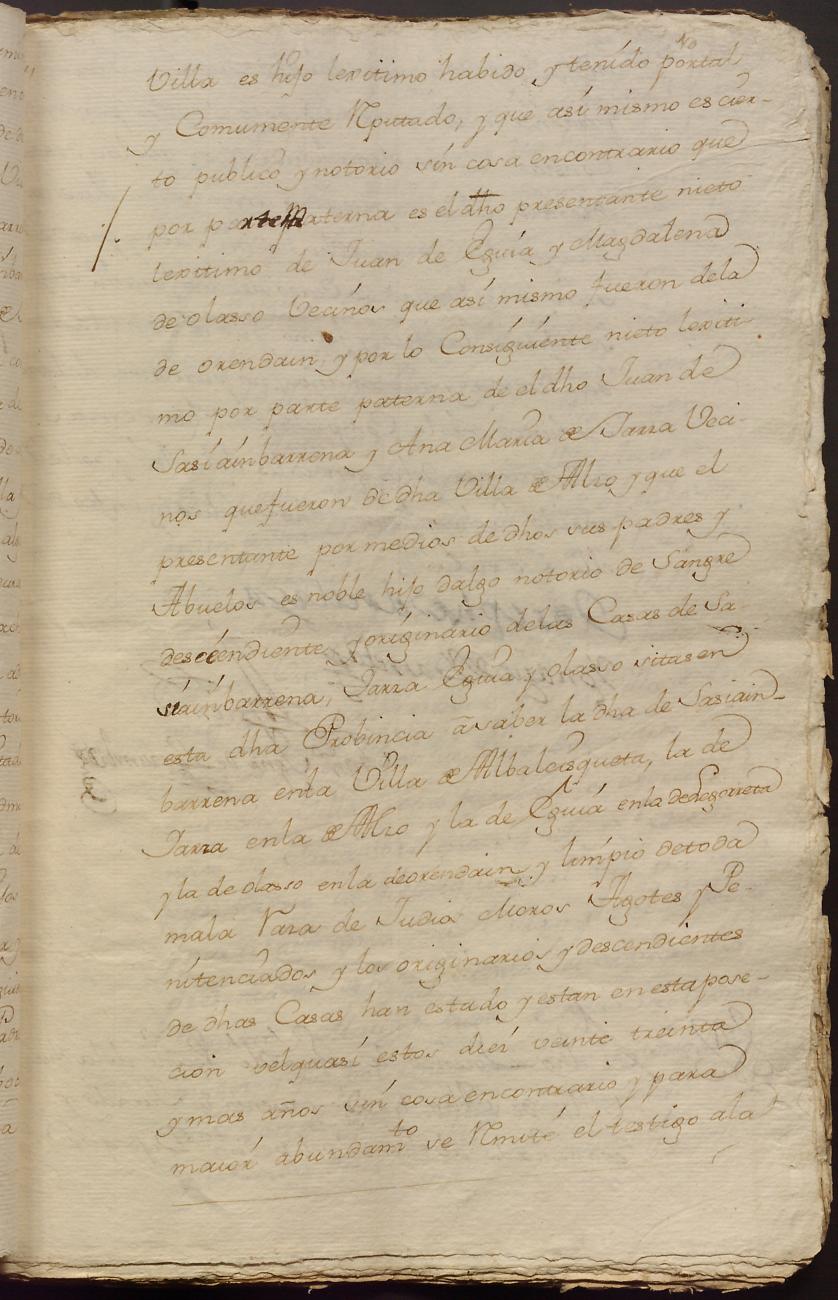 Villa es hijo lexitimo habido y tenido portal
y Comumente Rputado, y que asi mismo es cier-
to publico y notorio sin cosa encontrario que
por parte Materna es el dho presentante nieto
lexittimo de Juan de Eguia y Magdalena
de olasso Vecinos que asi mismo fueron dela
de orendain y por lo Consiguiente nieto lexiti
mo por parte paterna de el dho Juan de
Sasiainbarrena y Ana Maria de Jarza Veci-
nos que fueron de dha Villa de Alzo y que el
presentante por medios de dhos sus padres y
Abuelos es noble hijo dalgo notorio de Sangre
descendiente y originario delas Casas de Sa-
siainbarrena, Jarza Eguia y olasso sitas en
esta dha Probincia a saber la dha de Sasiain-
barrena enla Villa de Albaleisqueta, la de
Jarza enla de Alzo y la de Eguia enla de Legorreta
y la de olasso enla de orendain y limpio de toda
mala Raza de Judios Moros Agotes y Pe-
nitenciados y los originarios y descendientes
de dhas Casas han estado y estan en esta pose-
cion velquasi estos diez veinte treinta
y mas años sin cosa encontrario y para
maior abundamto se Rmite el testigo ala